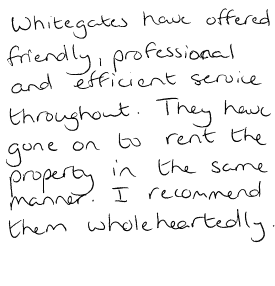 Whitegates have offered
friendly, professional
and efficient service
throughout. They have
gone on to rent the
property in the same
manner. I recommend
them wholeheartedly.